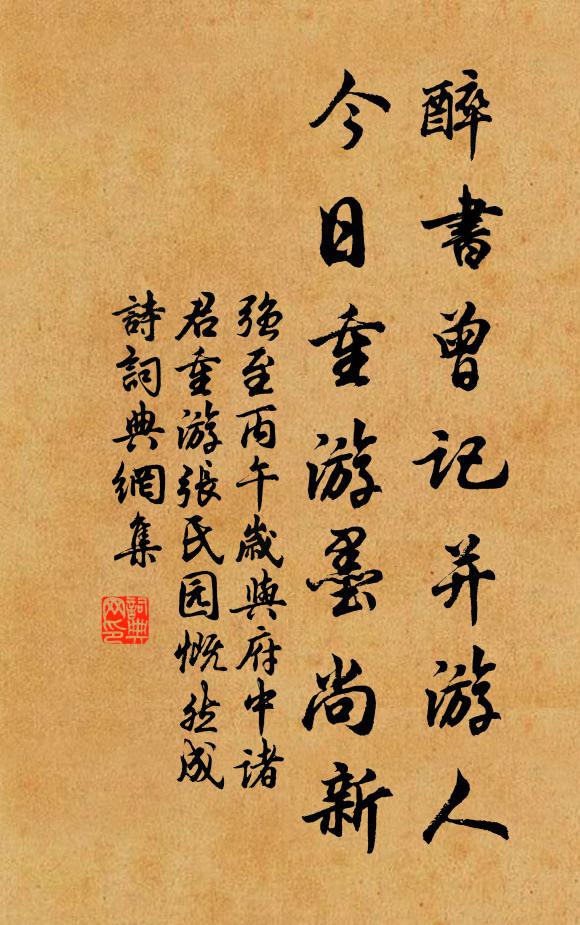 醉書曾記并游人
今日重游墨尚新
强至丙午歲與府中諸
君重游張氏园慨然成
詩詞典網集
詞典
网印